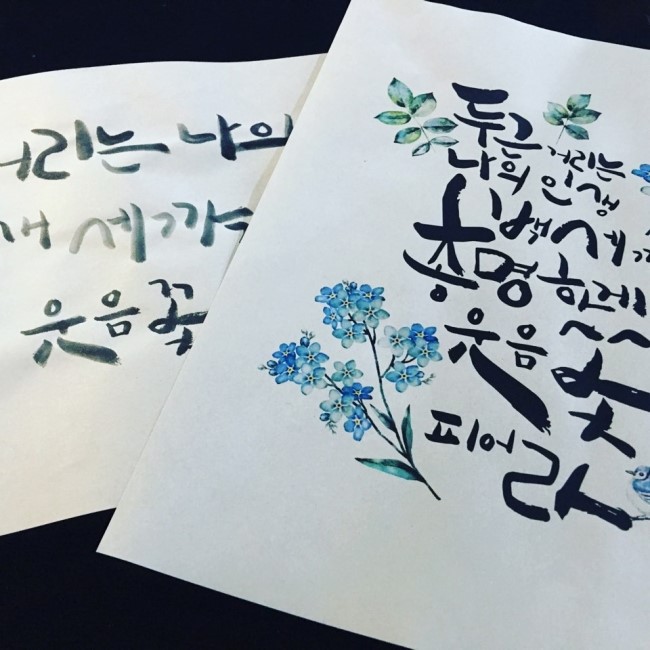 거리는 나의
세까
웃음꽃
두근거리는
나의 인생
백세까
총명하게
웃음
꽃
피어라